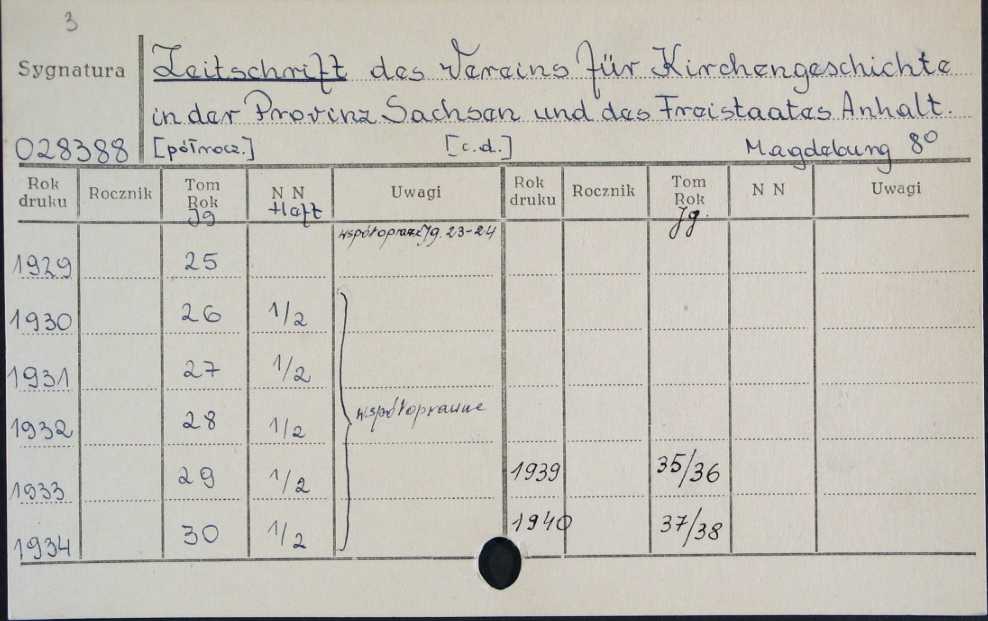 3
Sygnatura
Zeitschrift des Vereins für Kirchengeschichte
in der Provinz Sachsen und des Freistaates Anhalt.
028388 [półrocz.] [c.d.] Magdeburg 8°
Rok druku Rocznik Tom Rok Jg N N Heft Uwagi Rok druku Rocznik Tom Rok Jg. N N Uwagi
współopraw. Jg. 23-24
1929 25
1930 26 1/2
1931 27 1/2
1932 28 1/2 współoprawne
1933 29 1/2 1939 35/36
1934 30 1/2 1940 37/38